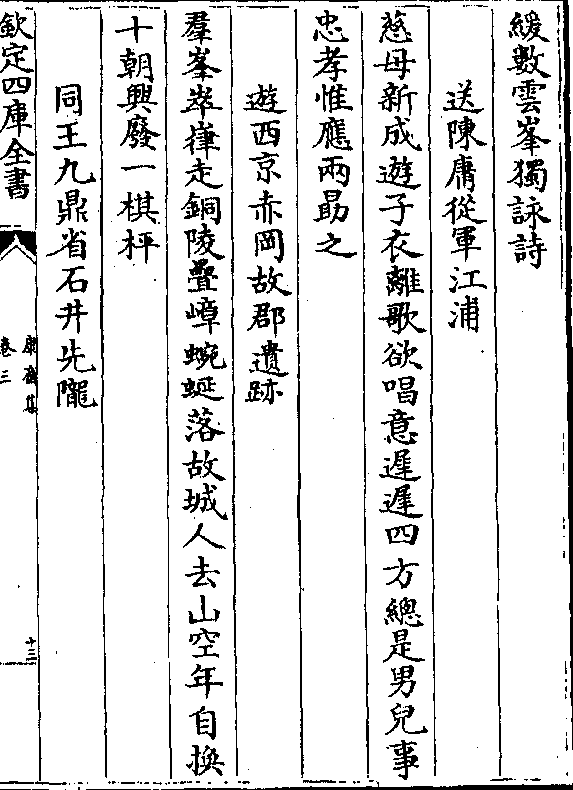 緩數雲峯獨詠詩
送陳庸從軍江浦
慈母新成遊子衣離歌欲唱意遲遲四方總是男兒事
忠孝惟應兩勗之
遊西京赤岡故郡遺跡
羣峯崒嵂走銅陵疊嶂蜿蜒落故城人去山空年自換
十朝興廢一棋枰
同王九鼎省石井先隴
欽定四庫全書
康齋集
卷三
十三